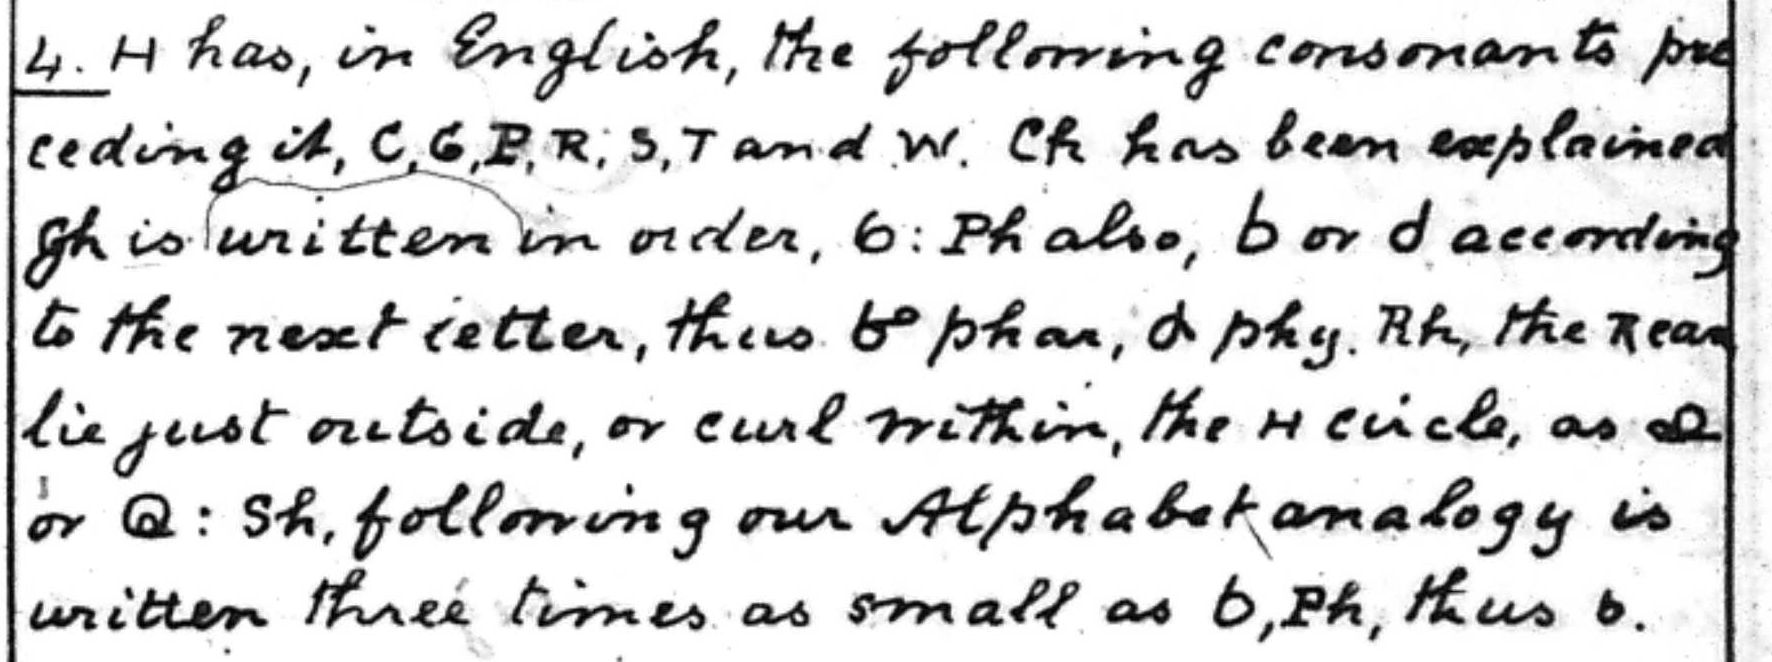 4. H has, in English, the following consonants pre
ceding it, C, G, P, R, S, T and W. Ch has been explained
gh is written in order, 6: Ph also, b or d according
to the next letter, thus phar, phy. Rh, the R can
lie just outside, or curl within, the H circle, as
or : Sh, following our Alphabet analogy is
written three times as small as b, Ph, thus b.